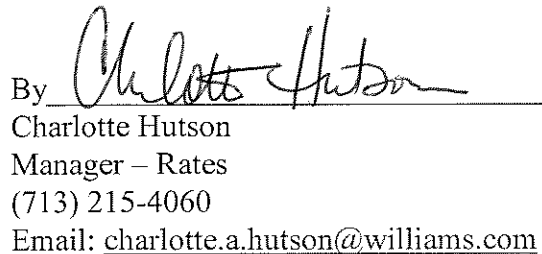 By Charlotte Hutson
Charlotte Hutson
Manager – Rates
(713) 215-4060
Email: charlotte.a.hutson@williams.com